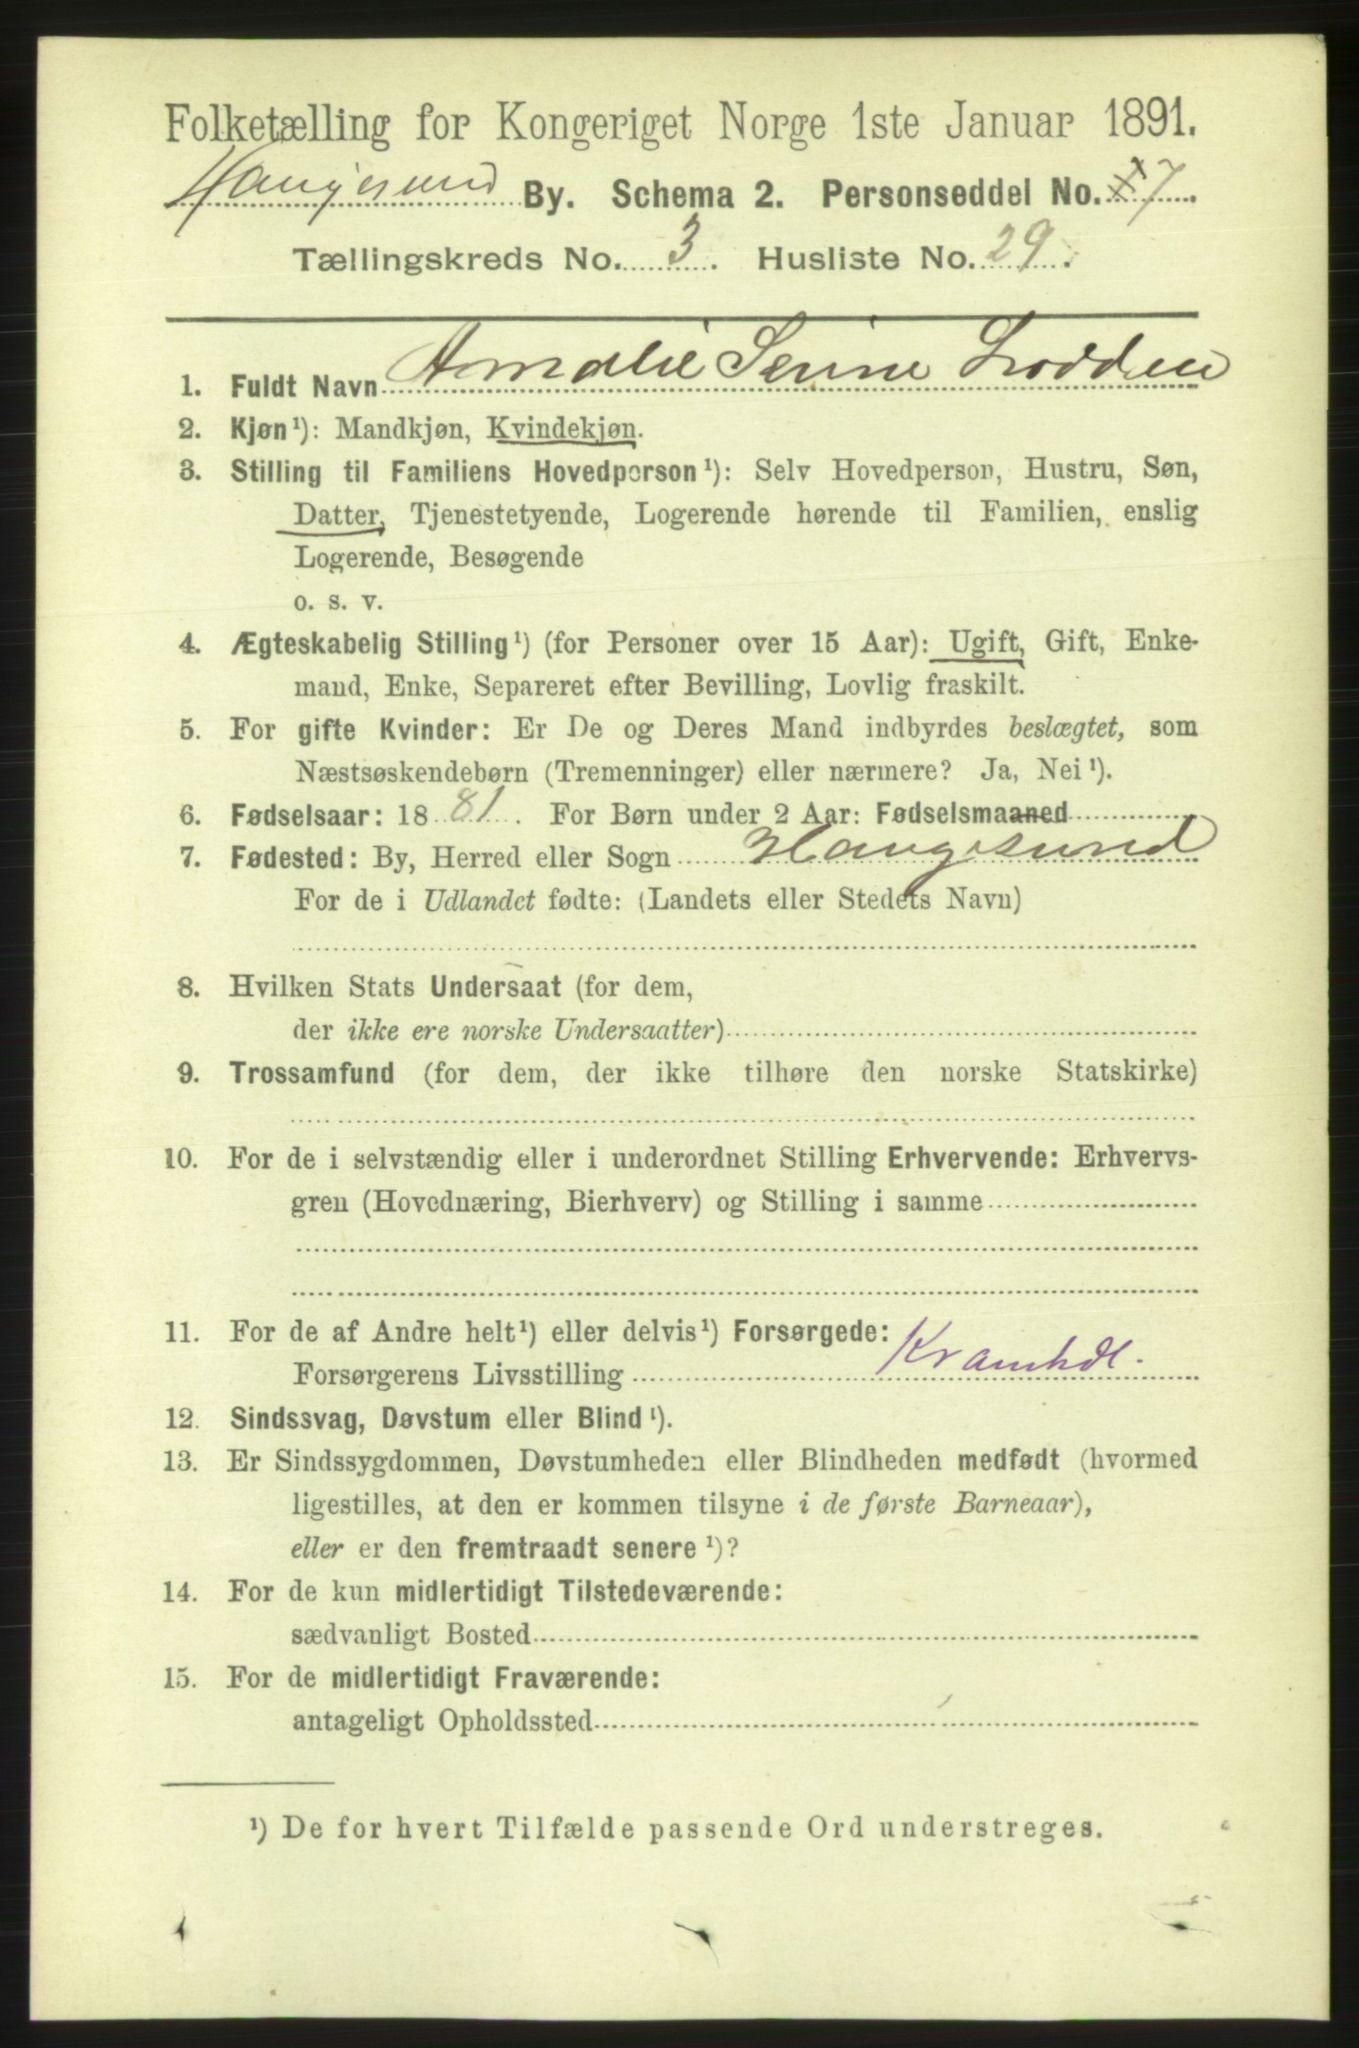 Folketælling for Kongeriget Norge 1ste Januar 1891.
Haugesund By. Schema 2. Personseddel No. 7.
Tællingskreds No. 3. Husliste No. 29.
1. Fuldt Navn Amalie Serine Lodden
2. Kjøn¹): Mandkjøn, Kvindekjøn.
3. Stilling til Familiens Hovedperson¹): Selv Hovedperson, Hustru, Søn,
Datter, Tjenestetyende, Logerende hørende til Familien, enslig
Logerende, Besøgende
o. s. v.
4. Ægteskabelig Stilling¹) (for Personer over 15 Aar): Ugift, Gift, Enke-
mand, Enke, Separeret efter Bevilling, Lovlig fraskilt.
5. For gifte Kvinder: Er De og Deres Mand indbyrdes beslægtet, som
Næstsøskendebørn (Tremenninger) eller nærmere? Ja, Nei¹).
6. Fødselsaar: 1881. For Børn under 2 Aar: Fødselsmaaned
7. Fødested: By, Herred eller Sogn Haugesund
For de i Udlandet fødte: (Landets eller Stedets Navn)
8. Hvilken Stats Undersaat (for dem,
der ikke ere norske Undersaatter)
9. Trossamfund (for dem, der ikke tilhøre den norske Statskirke)
10. For de i selvstændig eller i underordnet Stilling Erhvervende: Erhvervs-
gren (Hovednæring, Bierhverv) og Stilling i samme
11. For de af Andre helt¹) eller delvis¹) Forsørgede:
Forsørgerens Livsstilling Kramhdl.
12. Sindssvag, Døvstum eller Blind¹).
13. Er Sindssygdommen, Døvstumheden eller Blindheden medfødt (hvormed
ligestilles, at den er kommen tilsyne i de første Barneaar),
eller er den fremtraadt senere¹)?
14. For de kun midlertidigt Tilstedeværende:
sædvanligt Bosted
15. For de midlertidigt Fraværende:
antageligt Opholdssted
¹) De for hvert Tilfælde passende Ord understreges.